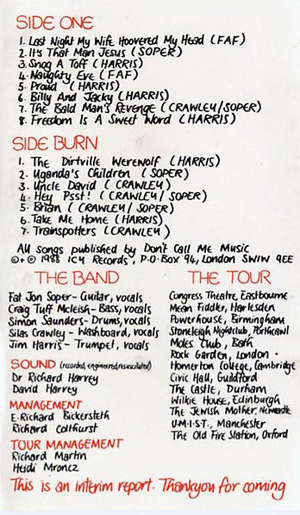 SIDE ONE
1. Last Night My Wife Hoovered My Head (FAF)
2. It's That Man Jesus (SOPER)
3. Snog A Toff (HARRIS)
4. Naughty Eve (FAF)
5. Proud (HARRIS)
6. Billy And Jacky (HARRIS)
7. The Bald Man's Revenge (CRAWLEY/SOPER)
8. Freedom Is A Sweet Word (HARRIS)
SIDE BURN
1. The Dirtville Werewolf (HARRIS)
2. Uganda's Children (SOPER)
3. Uncle David (CRAWLEY)
4. Hey Psst! (CRAWLEY/SOPER)
5. Brian (CRAWLEY/SOPER)
6. Take Me Home (HARRIS)
7. Trainspotters (CRAWLEY)
All songs published by Don't Call Me Music
©+℗ 1988 ICH Records, P.O. Box 94, London SW1W 9EE
THE BAND
Fat Jon Soper - Guitar, vocals
Craig Tuff Mcleish - Bass, vocals
Simon Saunders - Drums, vocals
Silas Crawley - Washboard, vocals
Jim Harris - Trumpet, vocals
SOUND (recorded, engineered, resuscitated)
Dr Richard Harvey
David Harvey
MANAGEMENT
E. Richard Bickersteth
Richard Collhurst
TOUR MANAGEMENT
Richard Martin
Heidi Mroncz
THE TOUR
Congress Theatre, Eastbourne
Mean Fiddler, Harlesden
Powerhouse, Birmingham
Stoneleigh Nightclub, Porthcawl
Moles Club, Bath
Rock Garden, London
Homerton College, Cambridge
Civic Hall, Guildford
The Castle, Durham
Wilkie House, Edinburgh
The Jewish Mother, Newcastle
U.M.I.S.T., Manchester
The Old Fire Station, Oxford
This is an interim report. Thankyou for coming